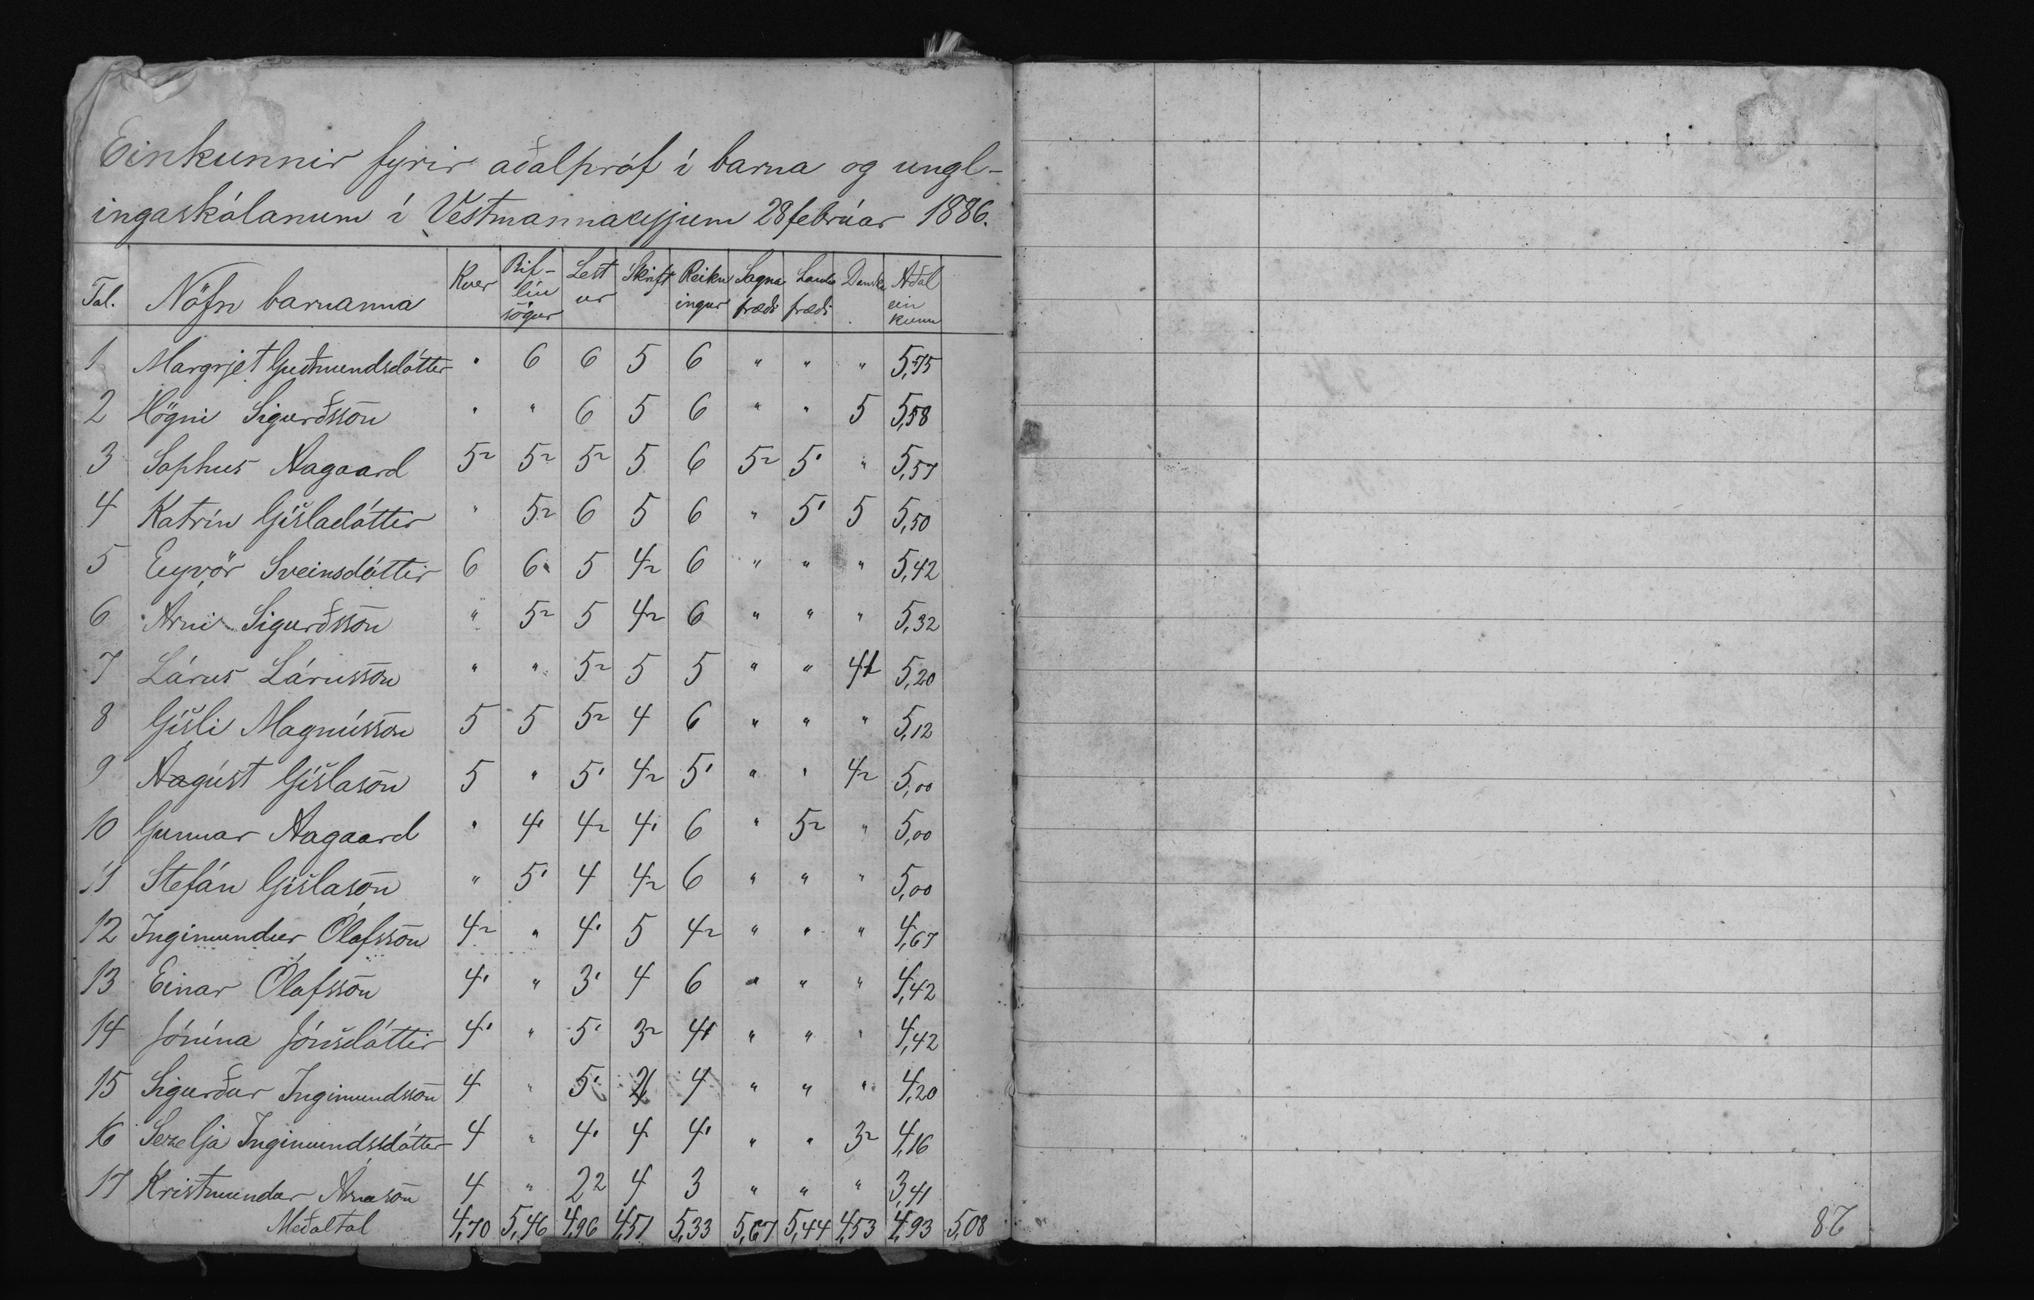 Einkunnir fyrir aðalpróf í barna og ungl-
ingaskólanum í Vestmannaeyjum 28 febrúar 1886.
Tal. Nöfn barnanna Kver Bif-líu sögur Lest ur Skrift Reikn ingur Sagna fræði Landa fræði Danska Aðal ein kunn
1 Margrjet Guðmundsdóttir " 6 6 5 6 " " " 5,75
2 Högni Sigurðsson " " 6 5 6 " " 5 5,58
3 Sophus Aagaard 5² 5² 5² 5 6 5² 5' " 5,57
4 Katrín Gísladóttir " 5² 6 5 6 " 5' 5 5,50
5 Eyvör Sveinsdóttir 6 6 5 4² 6 " " " 5,42
6 Árni Sigurðsson " 5² 5 4² 6 " " " 5,32
7 Lárus Lárusson " " 5² 5 5 " " 4' 5,20
8 Gísli Magnússon 5 5 5² 4 6 " " " 5,12
9 Aagúst Gíslason 5 " 5' 4² 5' " " 4² 5,00
10 Gunnar Aagaard " 4' 4² 4' 6 " 5² " 5,00
11 Stefán Gíslason " 5' 4 4² 6 " " " 5,00
12 Ingimundur Ólafsson 4² " 4' 5 4² " " " 4,67
13 Einar Ólafsson 4' " 3' 4 6 " " " 4,42
14 Jónína Jónsdóttir 4' " 5' 3² 4' " " " 4,42
15 Sigurður Ingimundsson 4 " 5' 4 " " " 4,20
16 Sezelja Ingimundsdóttir 4 " 4' 4 4' " " 3² 4,16
17 Kristmundur Árnason 4 " 2² 4 3 " " " 3,41
Meðaltal 4,70 5,46 4,96 4,51 5,33 5,67 5,44 4,53 4,93 5,08
87